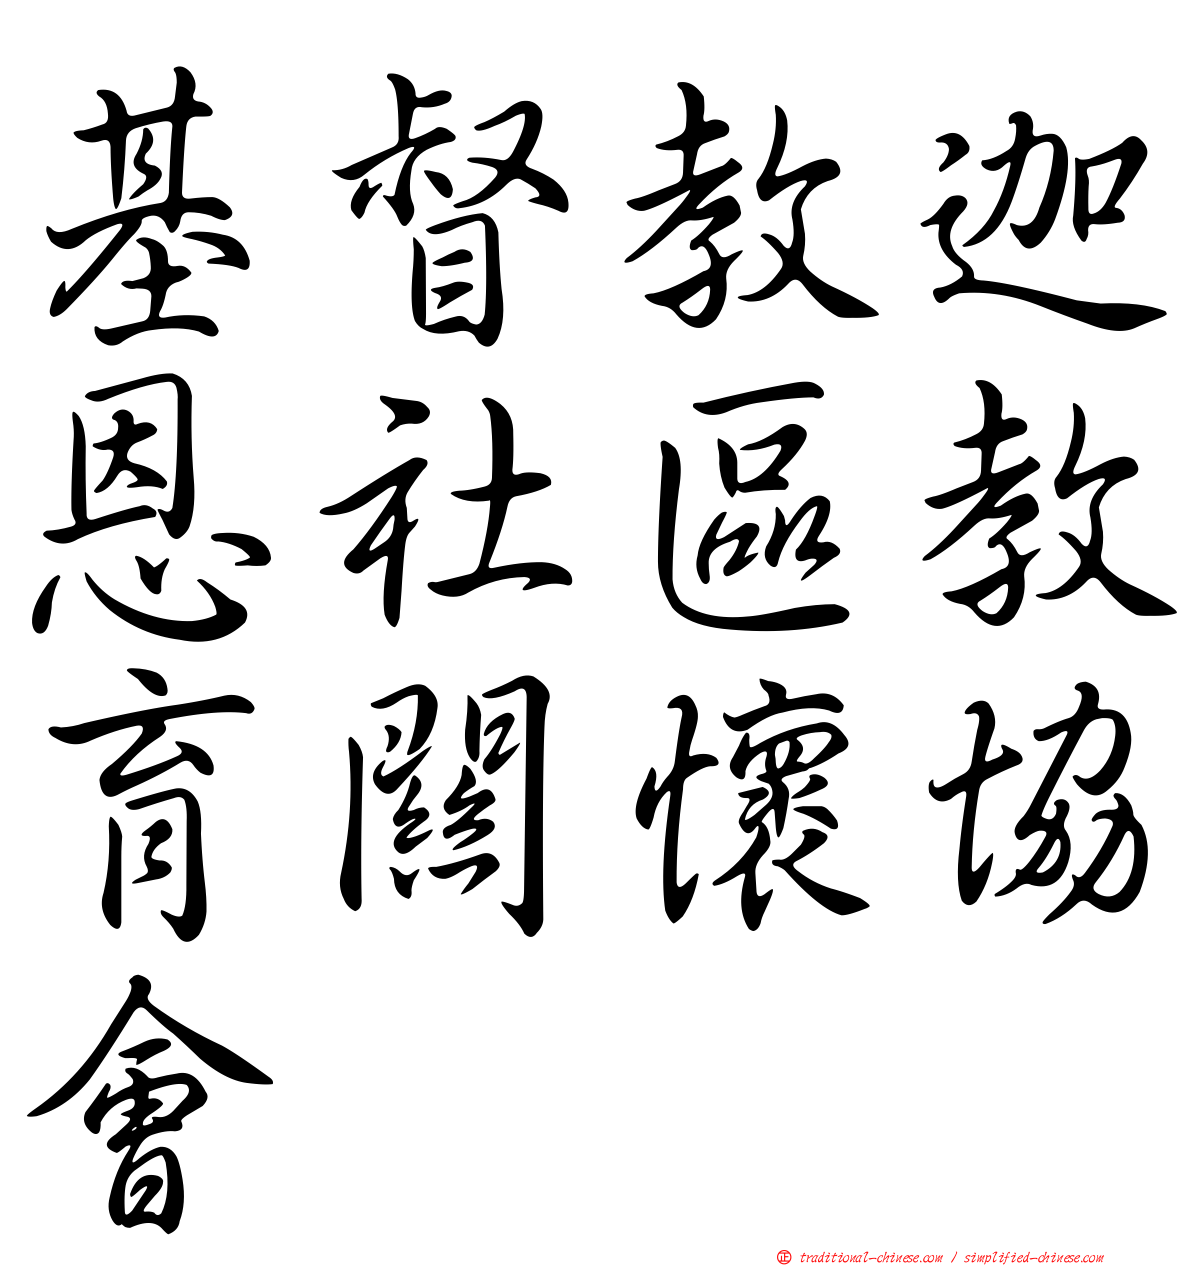 基督教迦
恩社區教
育關懷協
會
㊣ traditional-chinese.com / simplified-chinese.com